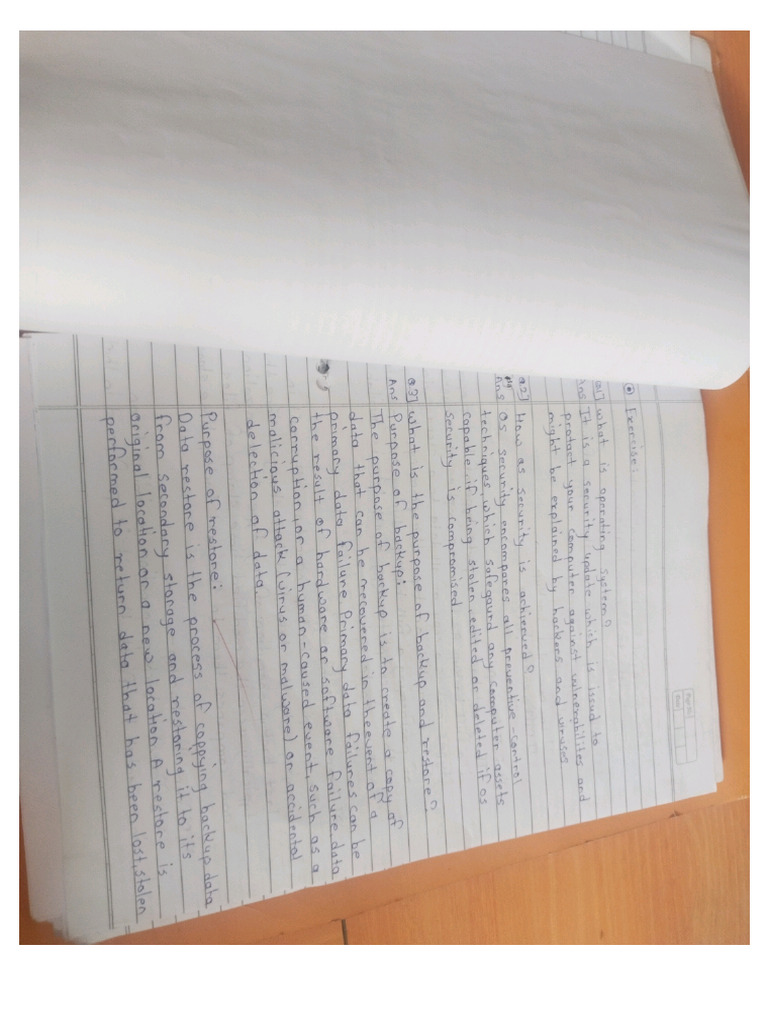 Exercise:
Q1] what is operating system?
Ans It is a security update which is issud to
protact your computer against vulnerabilites and
might be explained by hackers and viruses
Q2] How os security is achierved?
Ans Os security encompares all preventive-control
techniques, which safegaurd any computer assets
capable if being stolen, edited or deleted if os
security is compromised.
Q3] what is the purpose of backup and restore?
Ans Purpose of backup:
The purpose of backup is to create a copy of
data that can be recovered in the event of a
primary data failure Primary data failures can be
the result of hardware or software failure, data
corruption, or a human-caused event, such as a
malicious attack (virus or malware) or accidental
delection of data.
Purpose of restore:
Data restore is the process of coppying backup data
from secondary storage and restoring it to its
original location or a new location A restore is
performed to return data that has been lost, stolen